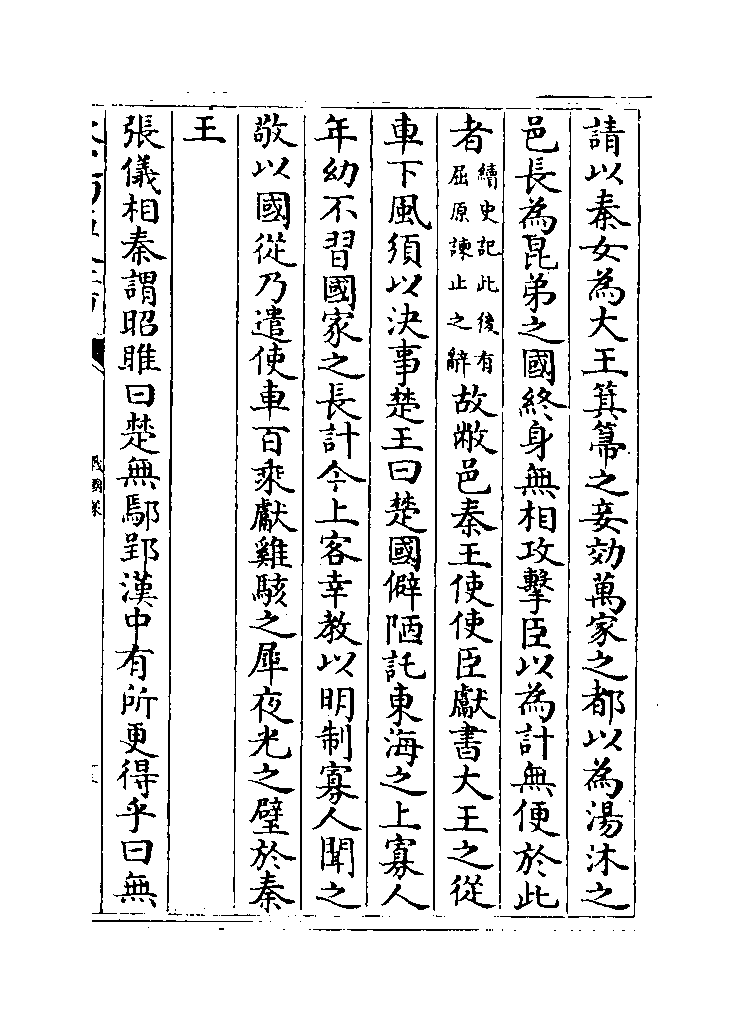 請以秦女為大王箕箒之妾効萬家之都以為湯沐之
邑長為昆弟之國終身無相攻擊臣以為計無便於此
者續史記此後有屈原諫止之辭故敝邑秦王使使臣獻書大王之從
車下風須以決事楚王曰楚國僻陋託東海之上寡人
年幼不習國家之長計今上客幸教以明制寡人聞之
敬以國從乃遣使車百乘獻雞駭之犀夜光之璧於秦
王
張儀相秦謂昭雎曰楚無鄢郢漢中有所更得乎曰無